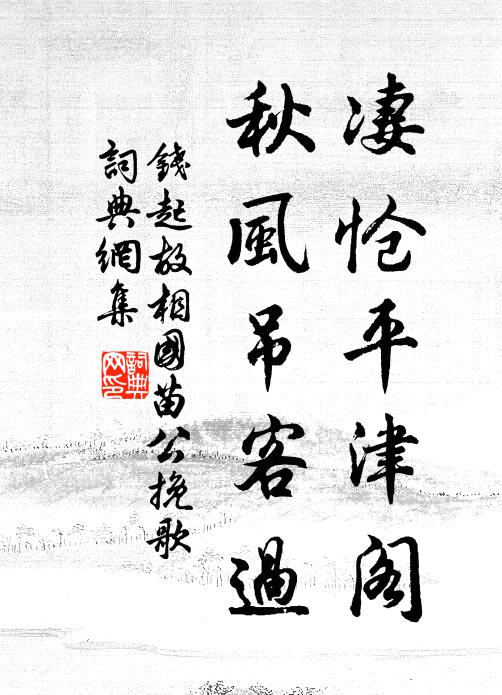 凄怆平津阁
秋風吊客過
錢起故相國苗公挽歌
詞典網集
詞典网印